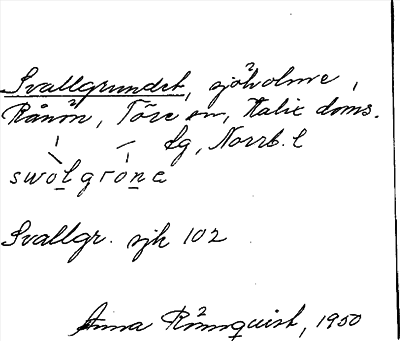 Svallgrundet, sjöholme,
Rånön, Töre sn, Kalix doms.
lg, Norrb. l
swolgrone
Svallgr. sjk 102
Anna Rönnquist, 1950